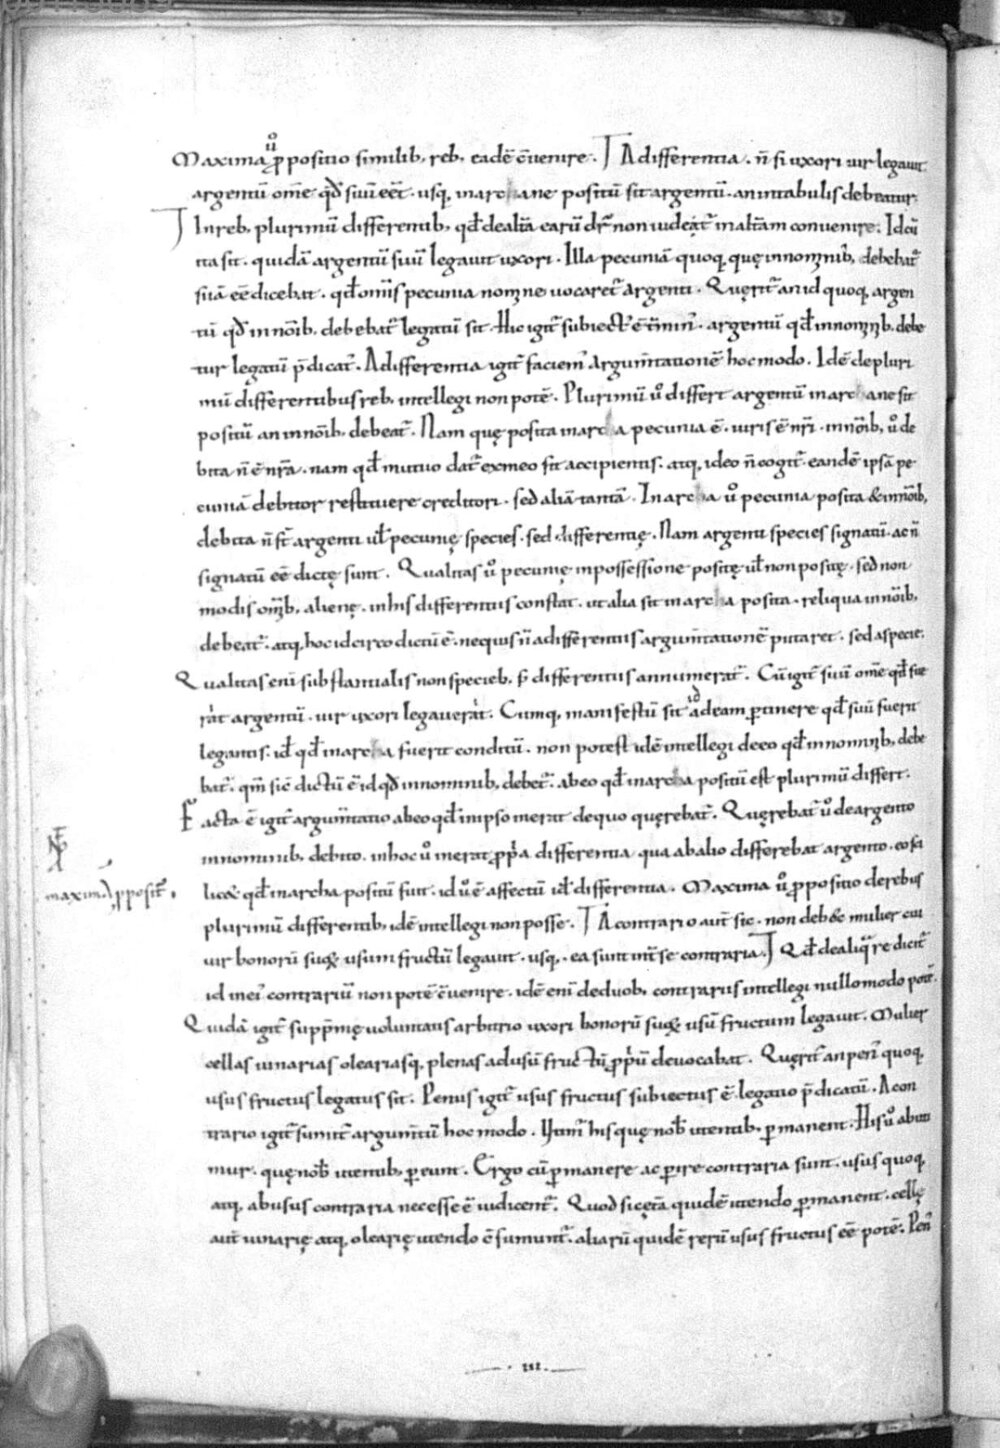 Maxima ꝓpositio similib; reb; eadē ꝯvenire. A differentia. n̄ si uxori uir legauit
argentū om̄e qđ suū eēt. usq; in arca ne positū sit argentū. an in tabulis debeatur.
In reb; plurimū differentib; qđ de alia earū dr̄ non uideat̄ in aliam convenire. Id cū
ita sit. quidā argentū suū legauit uxori. Illa pecuniā quoq; quę in nominib; debebat̄
suā eē dicebat. qđ om̄is pecunia nomine uocaret̄ argenti. Quęrit̄ an id quoq; argen
tū qđ in nōib; debebat̄ legatū sit. Hic igit̄ subiect' ē t̄min'. argentū qđ in nominib; debe
tur legatū p̄dicat̄. A differentia igit̄ faciem' argum̄tationē hoc modo. Idē de pluri
mū differentibus reb; intellegi non potē. Plurimū ů differt argentū in arc ane sit
positū an in nōib; debeat̄. Nam quę posita in arc a pecunia ē. iuris ē nr̄i. in nōib; ů de
bita n̄ ē nr̄a. nam qđ mutuo dat̄ ex meo fit accipientis. atq; ideo n̄ cogit̄ eandē ipsā pe
cuniā debitor restituere creditori. sed aliā tantā. In arc a ů pecunia posita & in nōib;
debita n̄ s̄t argenti ul̄ pecunię species. sed differentię. Nam argenti species signatū. ac n̄
signatū eē dictę sunt. Qualitas ů pecunię in possessione positę ul̄ non positę. sed non
modis om̄ib; alienę. in his differentiis constat. ut alia sit in arc a posita. reliqua in nōib;
debeat̄. atq; hoc idcirco dictū ē. ne quis n̄ a differentiis argum̄tationē putaret. sed a specie.
Qualitas eni substantialis non specieb; s; differentiis annumerat̄. Cū igit̄ suū om̄e qđ fue
rat argentū. uir uxori legauerat. Cumq; manifestū sit id ad eam ꝑtinere qđ suū fuerit
legantis. id qđ in arc a fuerit conditū. non potest idē intellegi de eo qđ in nominib; debe
bat̄. qm̄ sic dictū ē id qđ in nominib; debet̄. ab eo qđ in arc a positū est plurimū differt.
Facta ē igit̄ argum̄tatio ab eo qđ in ipso inerat de quo quęrebat̄. Quęrebat̄ ů de argento
in nominib; debito. in hoc ů inerat ꝓpria differentia qua ab alio differebat argento. eo sci
lic& qđ in archa positū fuit. id ů ē affectū ul̄ differentia. Maxima ů ꝓpositio de rebus
maxim̄ ꝓposit̄.
plurimū differentib; idē intellegi non posse. A contrario aut̄ sic. non deb& ē mulier cui
uir bonorū suoꝝ usum fructū legauit. usq; . ea sunt int̄ se contraria. Qđ de aliqua re dicit̄
id in ei' contrariū non potē ꝯvenire. idē eni de duob; contrariis intellegi nullo modo potē.
Quidā igit̄ supp̄mę voluntatis arbitrio uxori bonorū suoꝝ usū fructum legauit. Mulier
cellas uinarias oleariasq; plenas ad usū fructū ꝓpriū devocabat. Quęrit̄ an pen' quoq;
usus fructus legatus sit. Penus igit̄ usus fructus subiectus ē. legatio p̄dicatū. A con
trario igit̄ sumit̄ argum̄tū hoc modo. Utim' his quę nob̄ utentib; ꝑmanent. His ů abuti
mur. quę nob̄ utentib; ꝑeunt. Ergo cū ꝑmanere ac ꝑire contraria sunt. usus quoq;
atq; abusus contraria necesse ē iudicent̄. Quod si cętera quidē utendo ꝑmanent. cellę
aut̄ uinarię atq; olearię utendo ꝯsumunt̄. aliarū quidē rerū usus fructus eē potē. Pen'